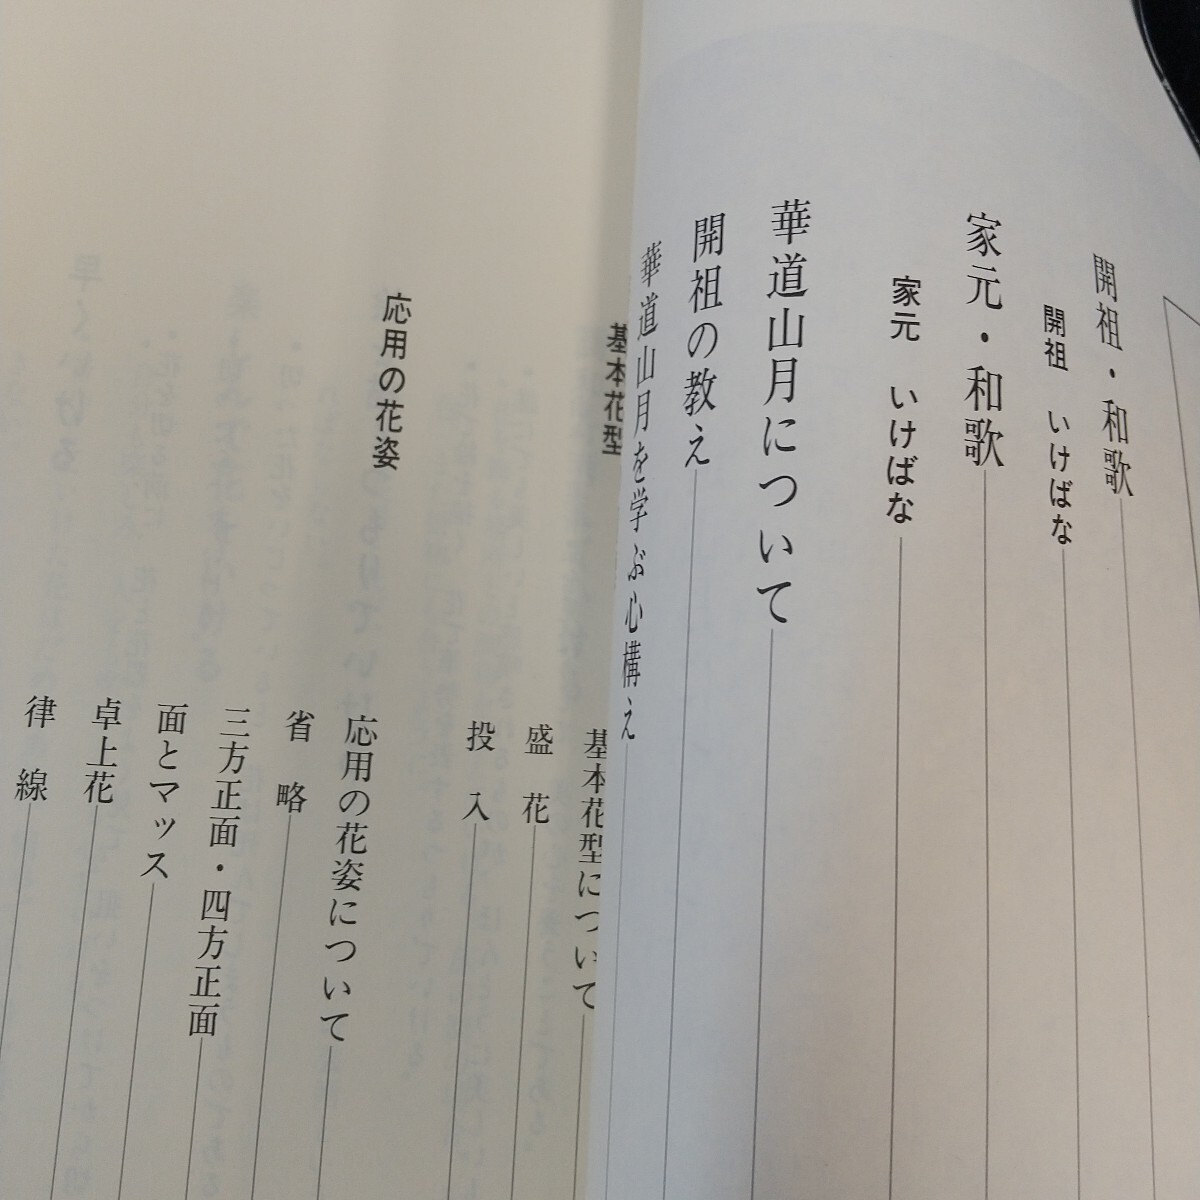 開祖・和歌
開祖 いけばな
家元・和歌
家元 いけばな
華道山月について
開祖の教え
華道山月を学ぶ心構え
基本花型
基本花型について
盛花
投入
応用の花姿
応用の花姿について
省略
三方正面・四方正面
面とマッス
卓上花
律線